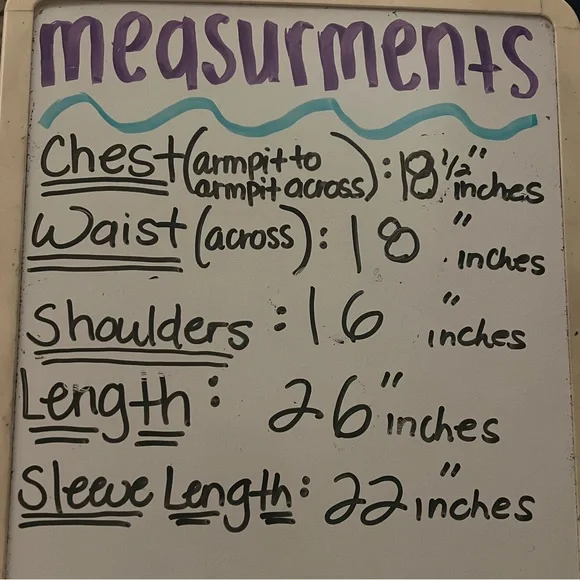 measurments
Chest (armpit to
armpit across): 18 1/2" inches
Waist (across): 18" inches
Shoulders: 16" inches
Length: 26" inches
Sleeve Length: 22" inches